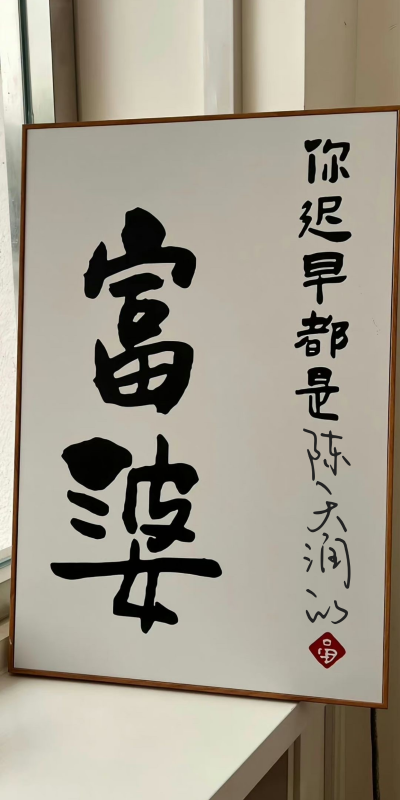 你迟早都是陈天润的
富婆
富